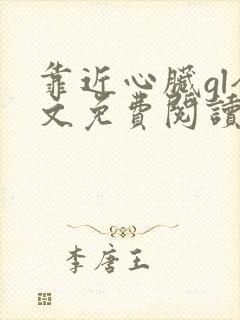 靠近心臟gl
文免費閱讀
李唐王